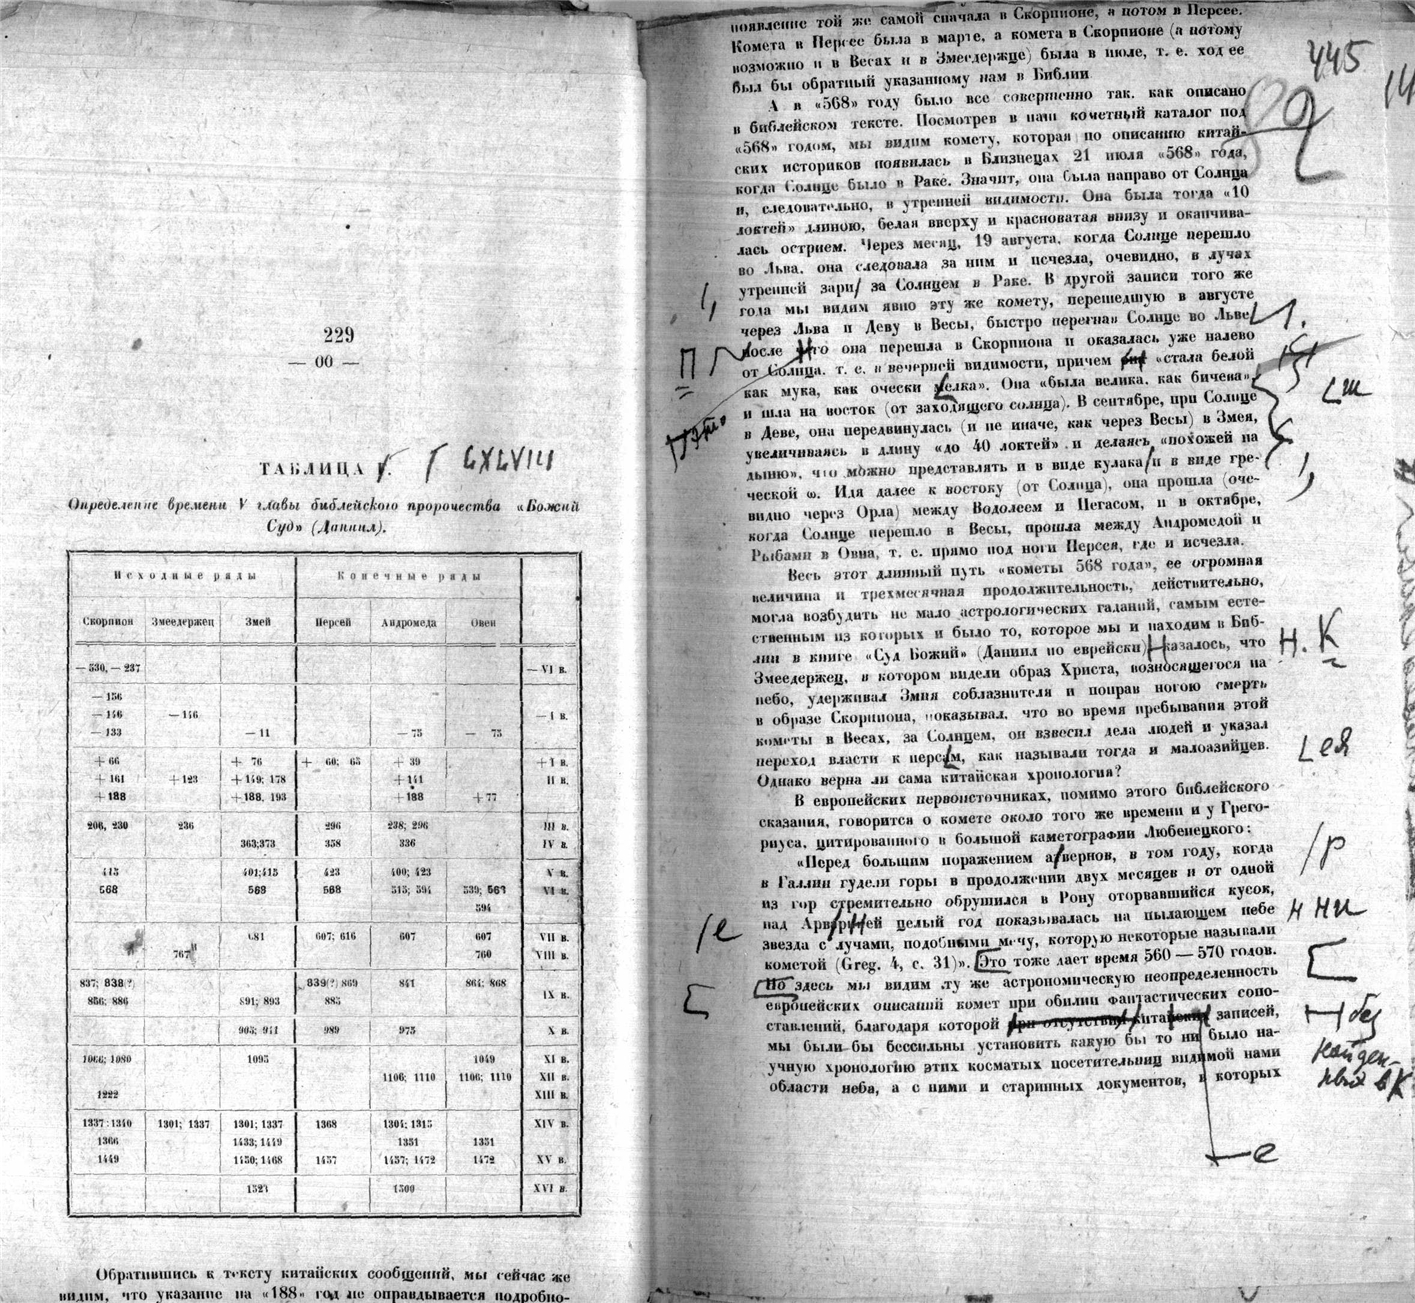 229
— 00 —
ТАБЛИЦА
Определение времени V главы библейского пророчества «Божий
Суд» (Даниил).
Исходные ряды Конечные ряды
Скорпион Змеедержец Змей Персей Андромеда Овен
— 530, — 237 — VI в.
— 156
— 146 — 146 — I в.
— 133 — 11 — 75 — 75
+ 66 + 76 + 60; 65 + 39 + I в.
+ 161 + 123 + 149; 178 + 141 II в.
+ 188 + 188, 193 + 188 + 77
206, 230 236 296 238; 296 III в.
363;373 358 336 IV в.
415 401;415 423 400; 423 V в.
568 568 568 515; 594 539; 563 VI в.
594
681 607; 616 607 607 VII в.
767 760 VIII в.
837; 838(?) 839(?) 869 841 864; 868
856; 886 891; 893 885 IX в.
905; 941 989 975 X в.
1066; 1080 1095 1049 XI в.
1106; 1110 1106; 1110 XII в.
1222 XIII в.
1337; 1340 1301; 1337 1301; 1337 1368 1304; 1315 XIV в.
1366 1433; 1449 1351 1351
1449 1450; 1468 1457 1457; 1472 1472 XV в.
1523 1500 XVI в.
Обратившись к тексту китайских сообщений, мы сейчас же
видим, что указание на «188» год не оправдывается подробно-
появление той же самой сначала в Скорпионе, а потом в Персее.
Комета в Персее была в марте, а комета в Скорпионе (а потому
возможно и в Весах и в Змеедержце) была в июле, т. е. ход ее
был бы обратный указанному нам в Библии
А в «568» году было все совершенно так, как описано
в библейском тексте. Посмотрев в наш кометный каталог под
«568» годом, мы видим комету, которая по описанию китай-
ских историков появилась в Близнецах 21 июля «568» года,
когда Солнце было в Раке. Значит, она была направо от Солнца
и, следовательно, в утренней видимости. Она была тогда «10
локтей» длиною, белая вверху и красноватая внизу и оканчива-
лась острием. Через месяц, 19 августа, когда Солнце перешло
во Льва, она следовала за ним и исчезла, очевидно, в лучах
утренней зари за Солнцем в Раке. В другой записи того же
года мы видим явно эту же комету, перешедшую в августе
через Льва и Деву в Весы, быстро перегнав Солнце во Льве
после чего она перешла в Скорпиона и оказалась уже налево
от Солнца, т. е. в вечерней видимости, причем «стала белой
как мука, как очески мелка». Она «была велика, как бичева»,
и шла на восток (от заходящего солнца). В сентябре, при Солнце
в Деве, она передвинулась (и не иначе, как через Весы) в Змея,
увеличиваясь в длину «до 40 локтей» и делаясь «похожей на
дыню», что можно представлять и в виде кулака и в виде гре-
ческой ω. Идя далее к востоку (от Солнца), она прошла (оче-
видно через Орла) между Водолеем и Пегасом, и в октябре,
когда Солнце перешло в Весы, прошла между Андромедой и
Рыбами в Овна, т. е. прямо под ноги Персея, где и исчезла.
Весь этот длинный путь «кометы 568 года», ее огромная
величина и трехмесячная продолжительность, действительно,
могла возбудить не мало астрологических гаданий, самым есте-
ственным из которых и было то, которое мы и находим в Биб-
лии в книге «Суд Божий» (Даниил по еврейски) казалось, что
Змеедержец, в котором видели образ Христа, возносящегося на
небо, удерживал Змия соблазнителя и поправ ногою смерть
в образе Скорпиона, показывал, что во время пребывания этой
кометы в Весах, за Солнцем, он взвесил дела людей и указал
переход власти к персам, как называли тогда и малоазийцев.
Однако верна ли сама китайская хронология?
В европейских первоисточниках, помимо этого библейского
сказания, говорится о комете около того же времени и у Грего-
риуса, цитированного в большой каметографии Любенецкого:
«Перед большим поражением а вернов, в том году, когда
в Галлии гудели горы в продолжении двух месяцев и от одной
из гор стремительно обрушился в Рону оторвавшийся кусок,
над Арв ей целый год показывалась на пылающем небе
звезда с лучами, подобными мечу, которую некоторые называли
кометой (Greg. 4, с. 31)». Это тоже дает время 560 — 570 годов.
Но здесь мы видим ту же астрономическую неопределенность
европейских описаний комет при обилии фантастических сопо-
ставлений, благодаря которой при отсутствии китайских записей,
мы были бы бессильны установить какую бы то ни было на-
учную хронологию этих косматых посетительниц видимой нами
области неба, а с ними и старинных документов, в которых
445
14
П
Lш
н. К
L ея
/р
/е
н ни
без
найден-
ных в К
е